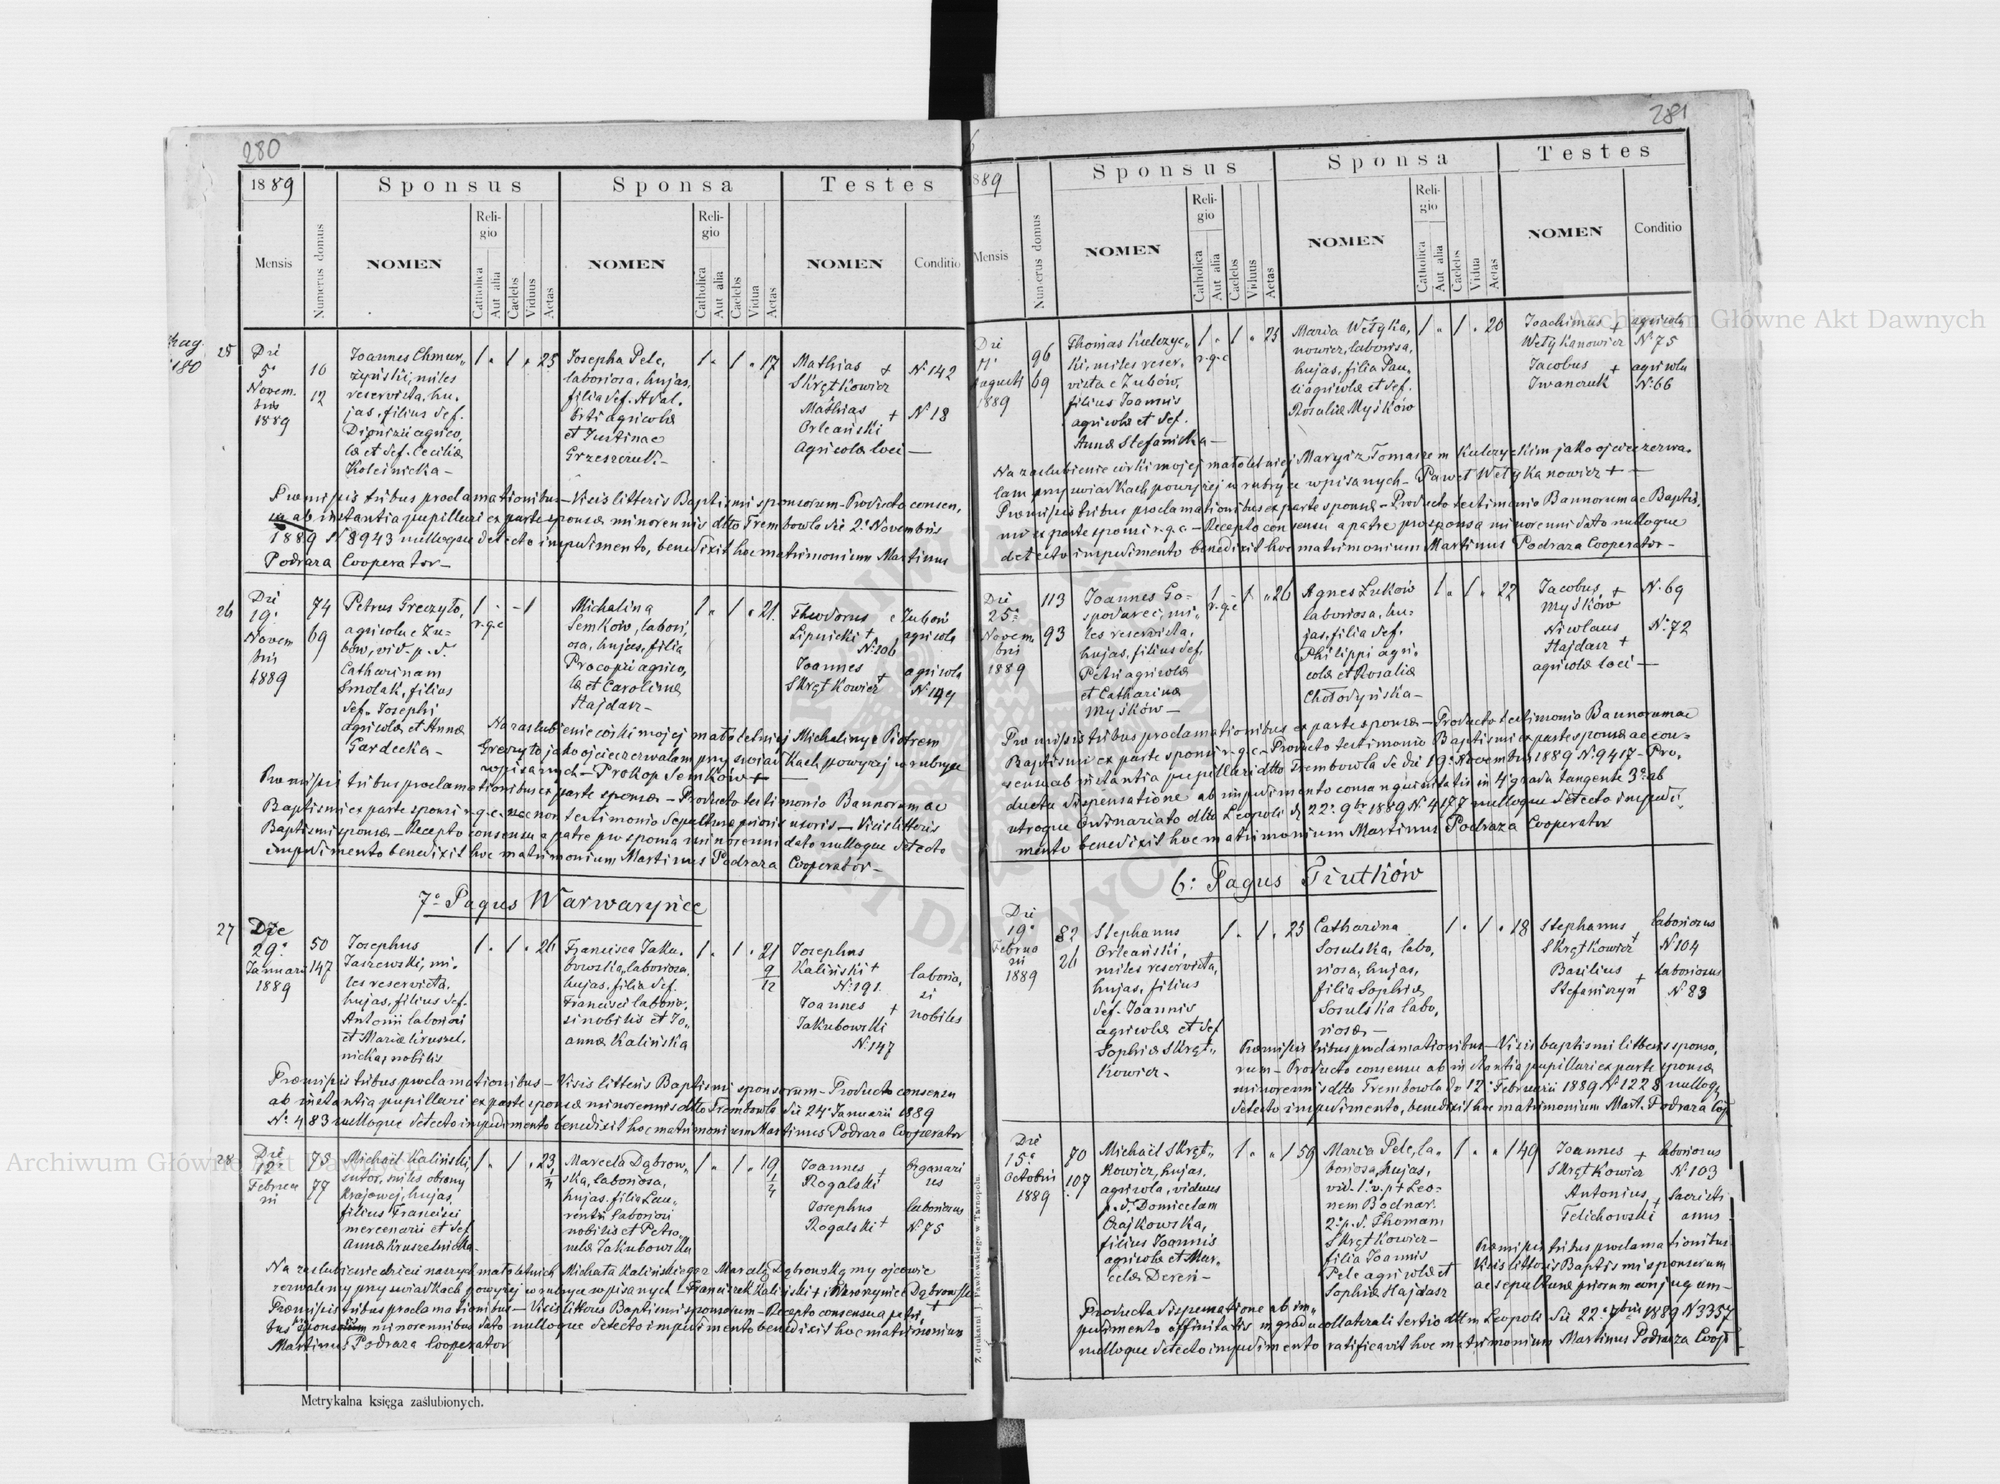 280
1889
Sponsus
Sponsa
Testes
Mensis
Numerus domus
NOMEN
Religio
Catholica
Aut alia
Caelebs
Viduus
Aetas
NOMEN
Religio
Catholica
Aut alia
Caelebs
Vidua
Aetas
NOMEN
Conditio
25
Die 5ª Novembris 1889
10
12
Joannes Chmur„
żyński, miles
reservista, hu„
jas, filius def.
Dionizii agrico„
læ et def. Cecilia
Koleśnicka —
1 „ 1 „ 25
Josepha Pele,
laboriosa, hujas,
filia def. Adal„
berti agricolæ
et Justinae
Grzeszczuk. —
1 „ 1 „ 17
Mathias +
Skrętkowicz
Mathias +
Orleański
Agricolæ loci —
Nº 142
Nº 18
Præmissis tribus proclamationibus — Visis litteris Baptismi sponsorum — Producto consen„
su ab instantia pupillari ex parte sponsæ minorennis ddto Trembowla die 2ª Novembris
1889 Nº 8943 nulloque detecto impedimento, benedixit hoc matrimonium Martinus
Podraza Cooperator —
26
Die 19ª Novembris 1889
74
69
Petrus Greczyło,
agricola e Zu„
bów, vid. p. d.
Catharinam
Smolak, filius
def. Josephi
agricolæ et Annæ
Gardecka —
1 r.g.c. „ „ 1
Michalina
Semków, labori„
osa, hujas, filia
Procopii agrico„
læ et Carolinæ
Hajdasz —
1 „ 1 „ 21
Theodorus
Lipnicki +
Nº 106
Joannes
Skrętkowicz +
e Zubów
agricola
agricola
Nº 149
Na zaslubienie córki mojej małoletniej Michaliny z Piotrem
Greczyło jako ojciec zezwalam przy swiadkach powyżej w rubryce
wpisanych — Prokop Semków + —
Præmissis tribus proclamationibus ex parte sponsæ — Producto testimonio Bannorum ac
Baptismi ex parte sponsi r.g.c. nec non testimonio sepulturæ prioris uxoris — Visis litteris
Baptismi sponsæ — Recepto consensu a patre pro sponsa minorenni dato nulloque detecto
impedimento benedixit hoc matrimonium Martinus Podraza Cooperator —
7º Pagus Warwaryńce
27
Die 29ª Januarii 1889
50
147
Josephus
Jaszewski, mi„
les reservista,
hujas, filius def.
Antonii laboriosi
et Mariæ Kruszel„
nicka, nobilis
1 „ 1 „ 26
Francisca Jaku„
bowska, laboriosa,
hujas, filia def.
Francisci laborio„
si nobilis et Jo„
annæ Kalińska
1 „ 1 „ 21 9/12
Josephus
Kaliński +
Nº 191
Joannes +
Jakubowski
Nº 147
laborio„
si
nobiles
Præmissis tribus proclamationibus — Visis litteris Baptismi sponsorum — Producto consensu
ab instantia pupillari ex parte sponsæ minorennis ddto Trembowla die 24ª Januarii 1889
Nº 483 nulloque detecto impedimento benedixit hoc matrimonium Martinus Podraza Cooperator
28
Die 12ª Februarii
75
77
Michael Kaliński,
sutor, miles obrony
krajowej, hujas,
filius Francisci
mercenarii et def.
Annæ Kruszelnicka —
1 „ 1 „ 23
Marcela Dąbrow„
ska, laboriosa,
hujas, filia Lau„
rentii laboriosi
nobilis et Petro„
nelæ Jakubowska
1 „ 1 „ 19
Joannes +
Rogalski
Josephus
Rogalski +
Organari
us
laboriosus
Nº 75
Na zaslubienie dzieci naszych małoletnich Michała Kalińskiego z Marcelą Dąbrowską my ojcowie
zezwalamy przy swiadkach powyżej w rubryce wpisanych — Franciszek Kaliński + i Wawrzyniec Dąbrowski +
Præmissis tribus proclamationibus — Visis litteris Baptismi sponsorum — Recepto consensu a patri„
bus sponsorum minorennibus dato nulloque detecto impedimento benedixit hoc matrimonium
Martinus Podraza Cooperator
Metrykalna księga zaślubionych.
Z drukarni J. Pawłowskiego w Tarnopolu.
281
1889
Sponsus
Sponsa
Testes
Mensis
Numerus domus
NOMEN
Religio
Catholica
Aut alia
Caelebs
Viduus
Aetas
NOMEN
Religio
Catholica
Aut alia
Caelebs
Vidua
Aetas
NOMEN
Conditio
Die 11ª Augusti 1889
96
69
Thomas Kulczyc„
ki, miles reser„
vista e Zubów,
filius Joannis
agricolæ et def.
Annæ Stefanicka —
1 r.g.c. „ 1 „ 25
Maria Wełyka„
nowicz, laboriosa,
hujas, filia Pau„
li agricolæ et def.
Rosaliæ Myśków
1 „ 1 „ 20
Joachimus +
Wełykanowicz
Jacobus +
Iwanczuk
agricola
Nº 75
agricola
Nº 66
Na zaslubienie córki mojej małoletniej Maryi z Tomaszem Kulczyckim jako ojciec zezwa„
lam przy swiadkach powyżej w rubryce wpisanych — Paweł Wełykanowicz + —
Præmissis tribus proclamationibus ex parte sponsæ — Producto testimonio Bannorum ac Baptis„
mi ex parte sponsi r.g.c. — Recepto consensu a patre pro sponsa minorenni dato nulloque
detecto impedimento benedixit hoc matrimonium Martinus Podraza Cooperator —
Die 25ª Novembris 1889
113
93
Joannes Go„
spodarec, mi„
les reservista,
hujas, filius def.
Petri agricolæ
et Catharinæ
Myśków —
1 r.g.c. 1 „ 26
Agnes Luków
laboriosa, hu„
jas, filia def.
Philippi agri„
colæ et Rosaliæ
Chołodyńska —
1 „ 1 „ 22
Jacobus +
Myśków
Nicolaus
Hajdasz +
agricolæ loci —
Nº 69
Nº 72
Præmissis tribus proclamationibus ex parte sponsæ — Producto testimonio Bannorum ac
Baptismi ex parte sponsi r.g.c. — Producto testimonio Baptismi ex parte sponsæ ac con„
sensu ab instantia pupillari ddto Trembowla de die 19ª Novembris 1889 Nº 9417 — Pro„
ducta dispensatione ab impedimento consanguinitatis in 4º gradu tangente 3º ab
utroque Ordinariato ddto Leopoli d. 22ª 9br 1889 Nº 4187 nulloque detecto impedi„
mento benedixit hoc matrimonium Martinus Podraza Cooperator
6º Pagus Prutków
Die 19ª Februarii 1889
82
26
Stephanus
Orleański,
miles reservista,
hujas, filius
def. Joannis
agricolæ et def.
Sophiæ Skręt„
kowicz —
1 „ 1 „ 25
Catharina
Sosulska, labo„
riosa, hujas,
filia Sophiæ
Sosulska labo„
riosæ —
1 „ 1 „ 18
Stephanus
Skrętkowicz +
Basilius +
Stefaniszyn
laboriosus
Nº 104
laboriosus
Nº 83
Præmissis tribus proclamationibus — Visis baptismi litteris sponso„
rum — Producto consensu ab instantia pupillari ex parte sponsæ
minorennis ddto Trembowla do 12ª Februarii 1889 Nº 1228 nulloq„
detecto impedimento, benedixit hoc matrimonium Mart. Podraza Coop
Die 15ª Octobris 1889
70
107
Michael Skręt„
kowicz, hujas,
agricola, viduus
p. d. Domicelam
Czajkowska,
filius Joannis
agricolæ et Mar„
celæ Dereń —
1 „ „ 1 59
Maria Pele, la„
boriosa, hujas,
vid. 1º v. p + Leo„
nem Bodnar.
2º p. d. Thomam
Skrętkowicz —
filia Joannis
Pele agricolæ et
Sophiæ Hajdasz
1 „ „ 1 49
Joannes +
Skrętkowicz
Antonius +
Felichowski
laboriosus
Nº 103
Sacristi„
anus
Præmissis tribus proclamationibus
Visis litteris Baptismi sponsorum
ac sepulturæ priorum conjugum —
Producta dispensatione ab im„
pedimento affinitatis in gradu collaterali tertio ddto Leopoli die 22ª 7bris 1889 Nº 3357
nulloque detecto impedimento ratificavit hoc matrimonium Martinus Podraza Coop
Archiwum Główne Akt Dawnych
Archiwum Główne Akt Dawnych